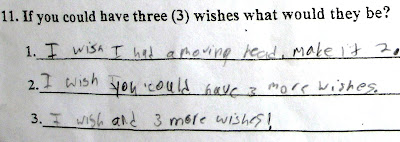 11. If you could have three (3) wishes what would they be?
1. I wish I had a moving head, make it 2.
2. I wish you could have 3 more wishes.
3. I wish and 3 more wishes!